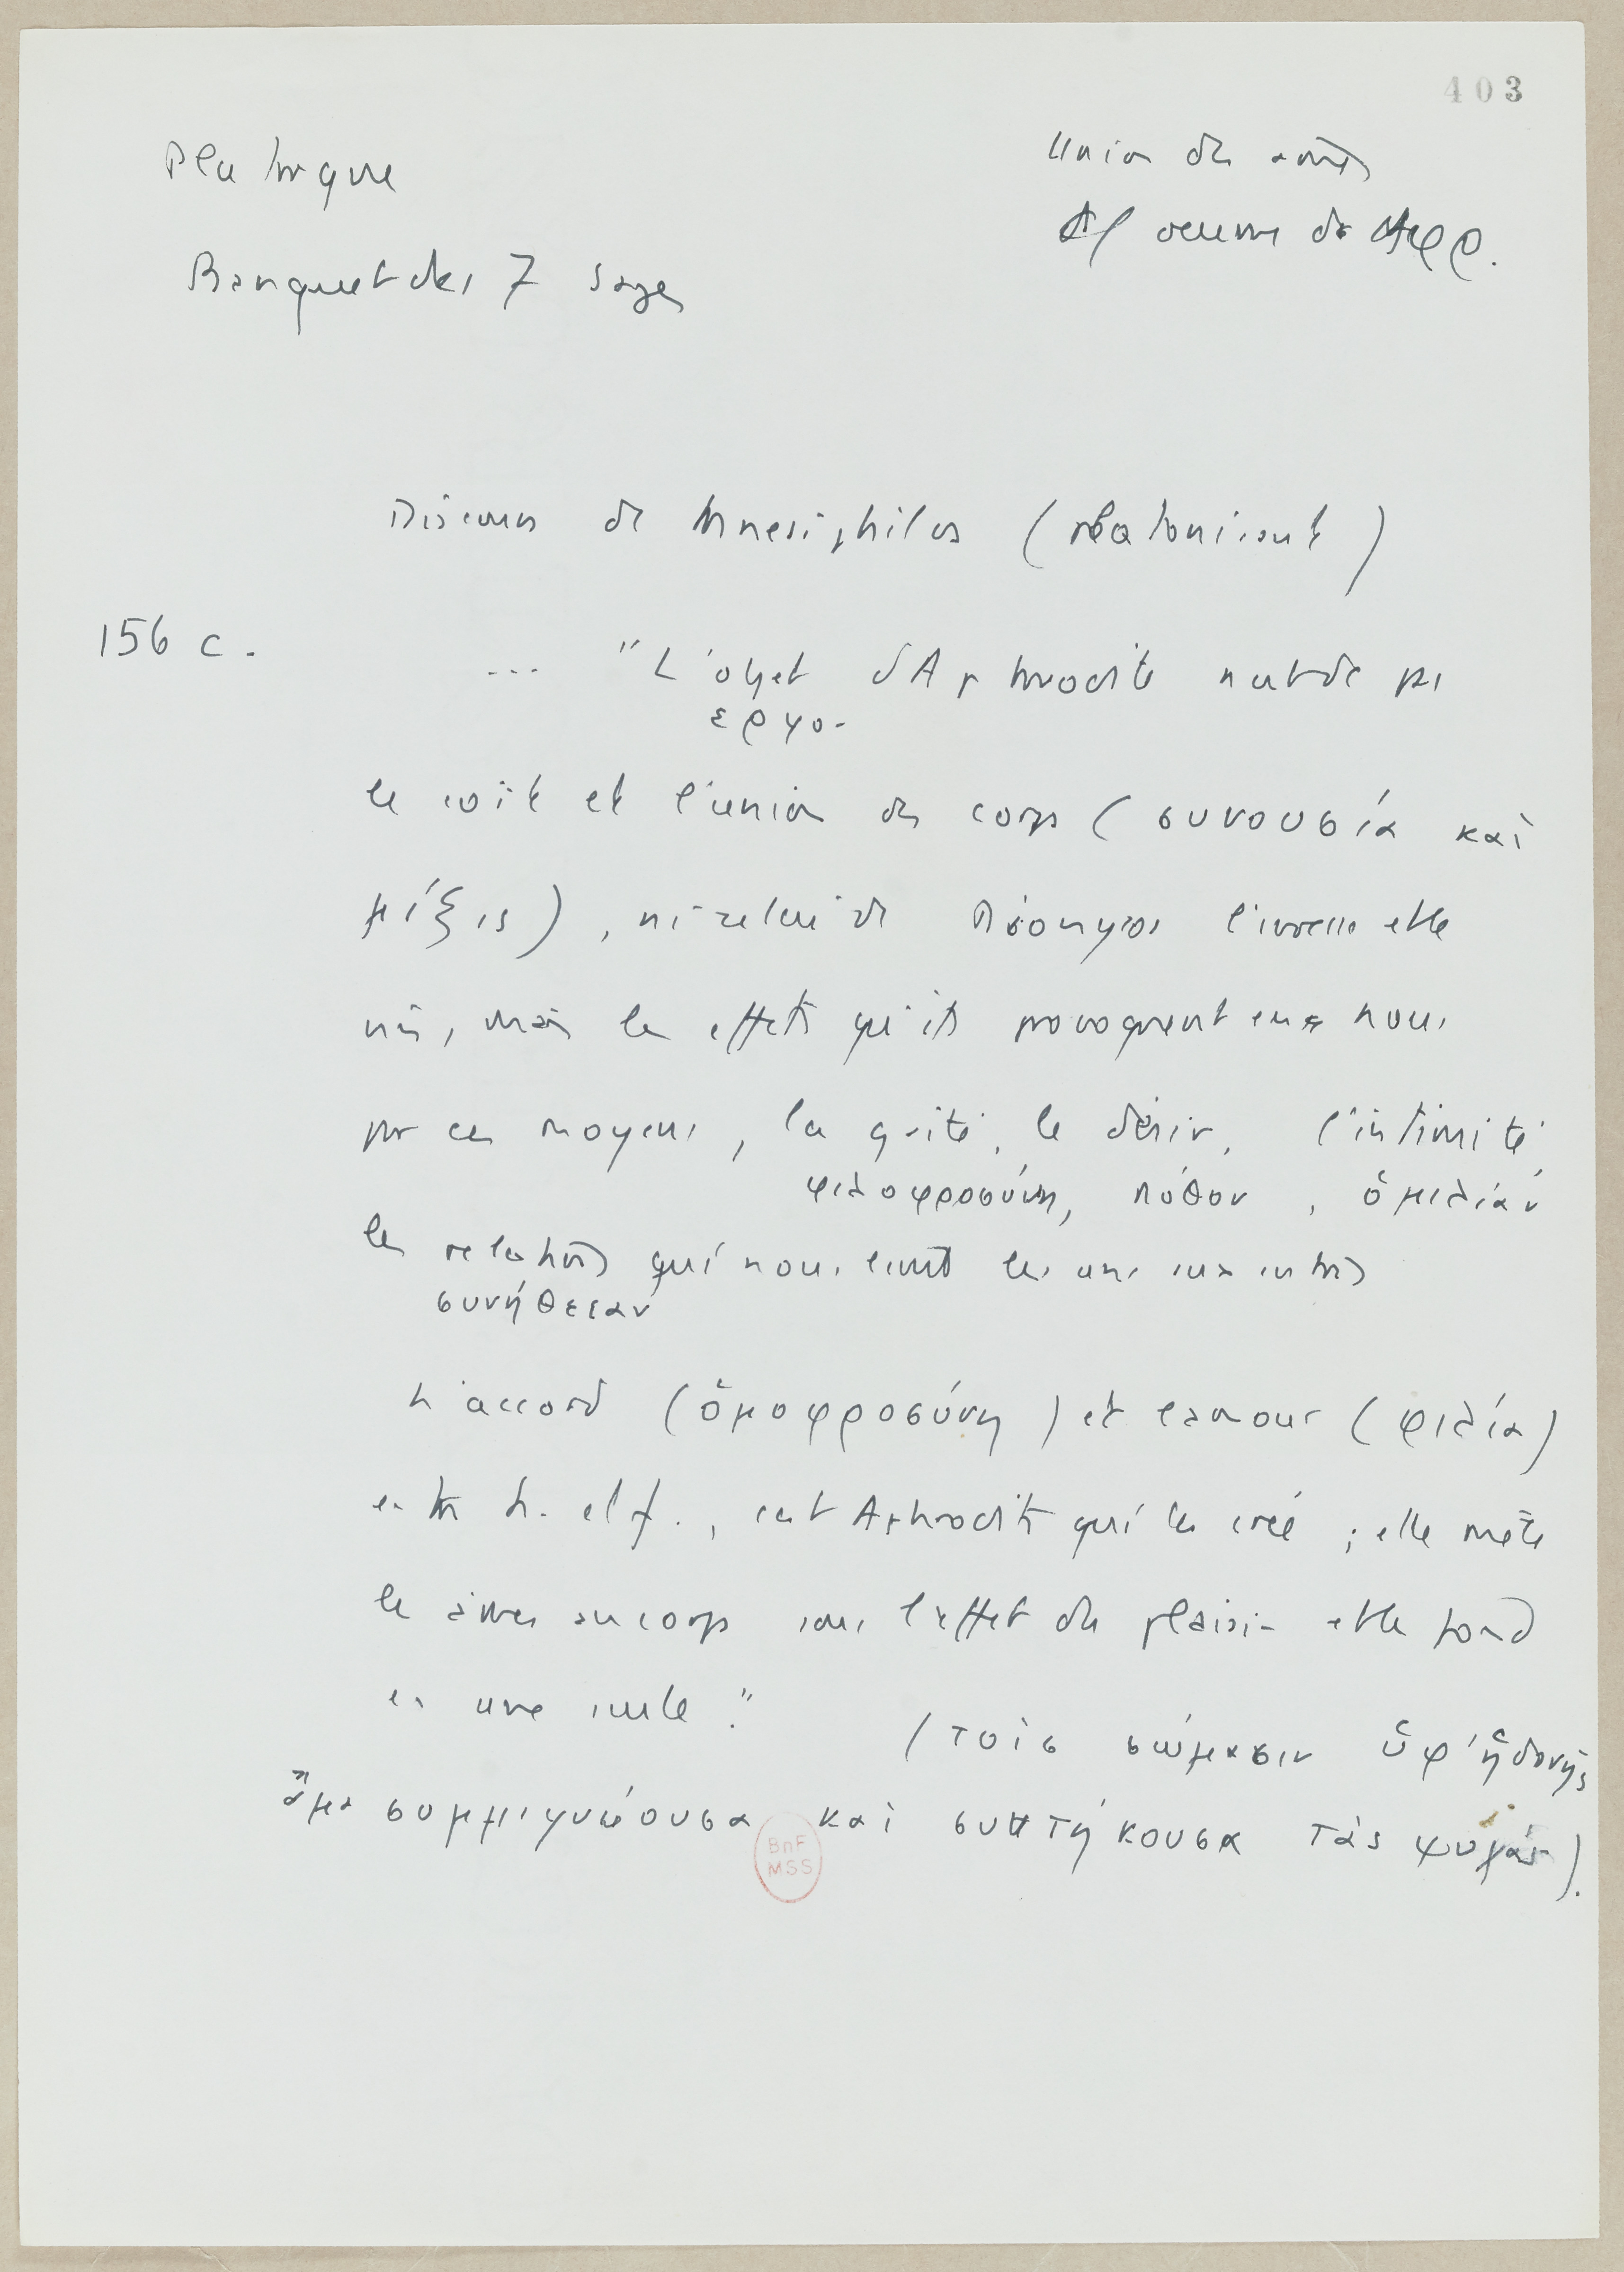 403
Plutarque
Union des âmes
Af oeuvre de Αφρ.
Banquet des 7 sages
Discours de Mnesiphilos (platonisant)
156 c.
... "L'objet d'Aphrodite n'est de pas
εργον
le coït et l'union des corps (συνουσία καὶ
μίξις), ni celui de Dionysos l'ivresse et le
vin, mais les effets qu'ils provoquent en nous
par ces moyens, la gaité, le désir, l'intimité,
φιλοφροσύνην, πόθον, ὁμιλίαν
les relations qui nous lient les uns aux autres
συνήθειαν
L'accord (ὁμοφροσύνη) et l'amour (φιλία)
entre h. et f., c'est Aphrodite qui les crée ; elle mêle
les âmes au corps sous l'effet du plaisir et les fond
en une seule."
(τοῖς σώμασιν ὑφ'ἡδονῆς
ἅμα συμμιγνύουσα καὶ συντήκουσα τὰς ψυχάς).
BnF
MSS